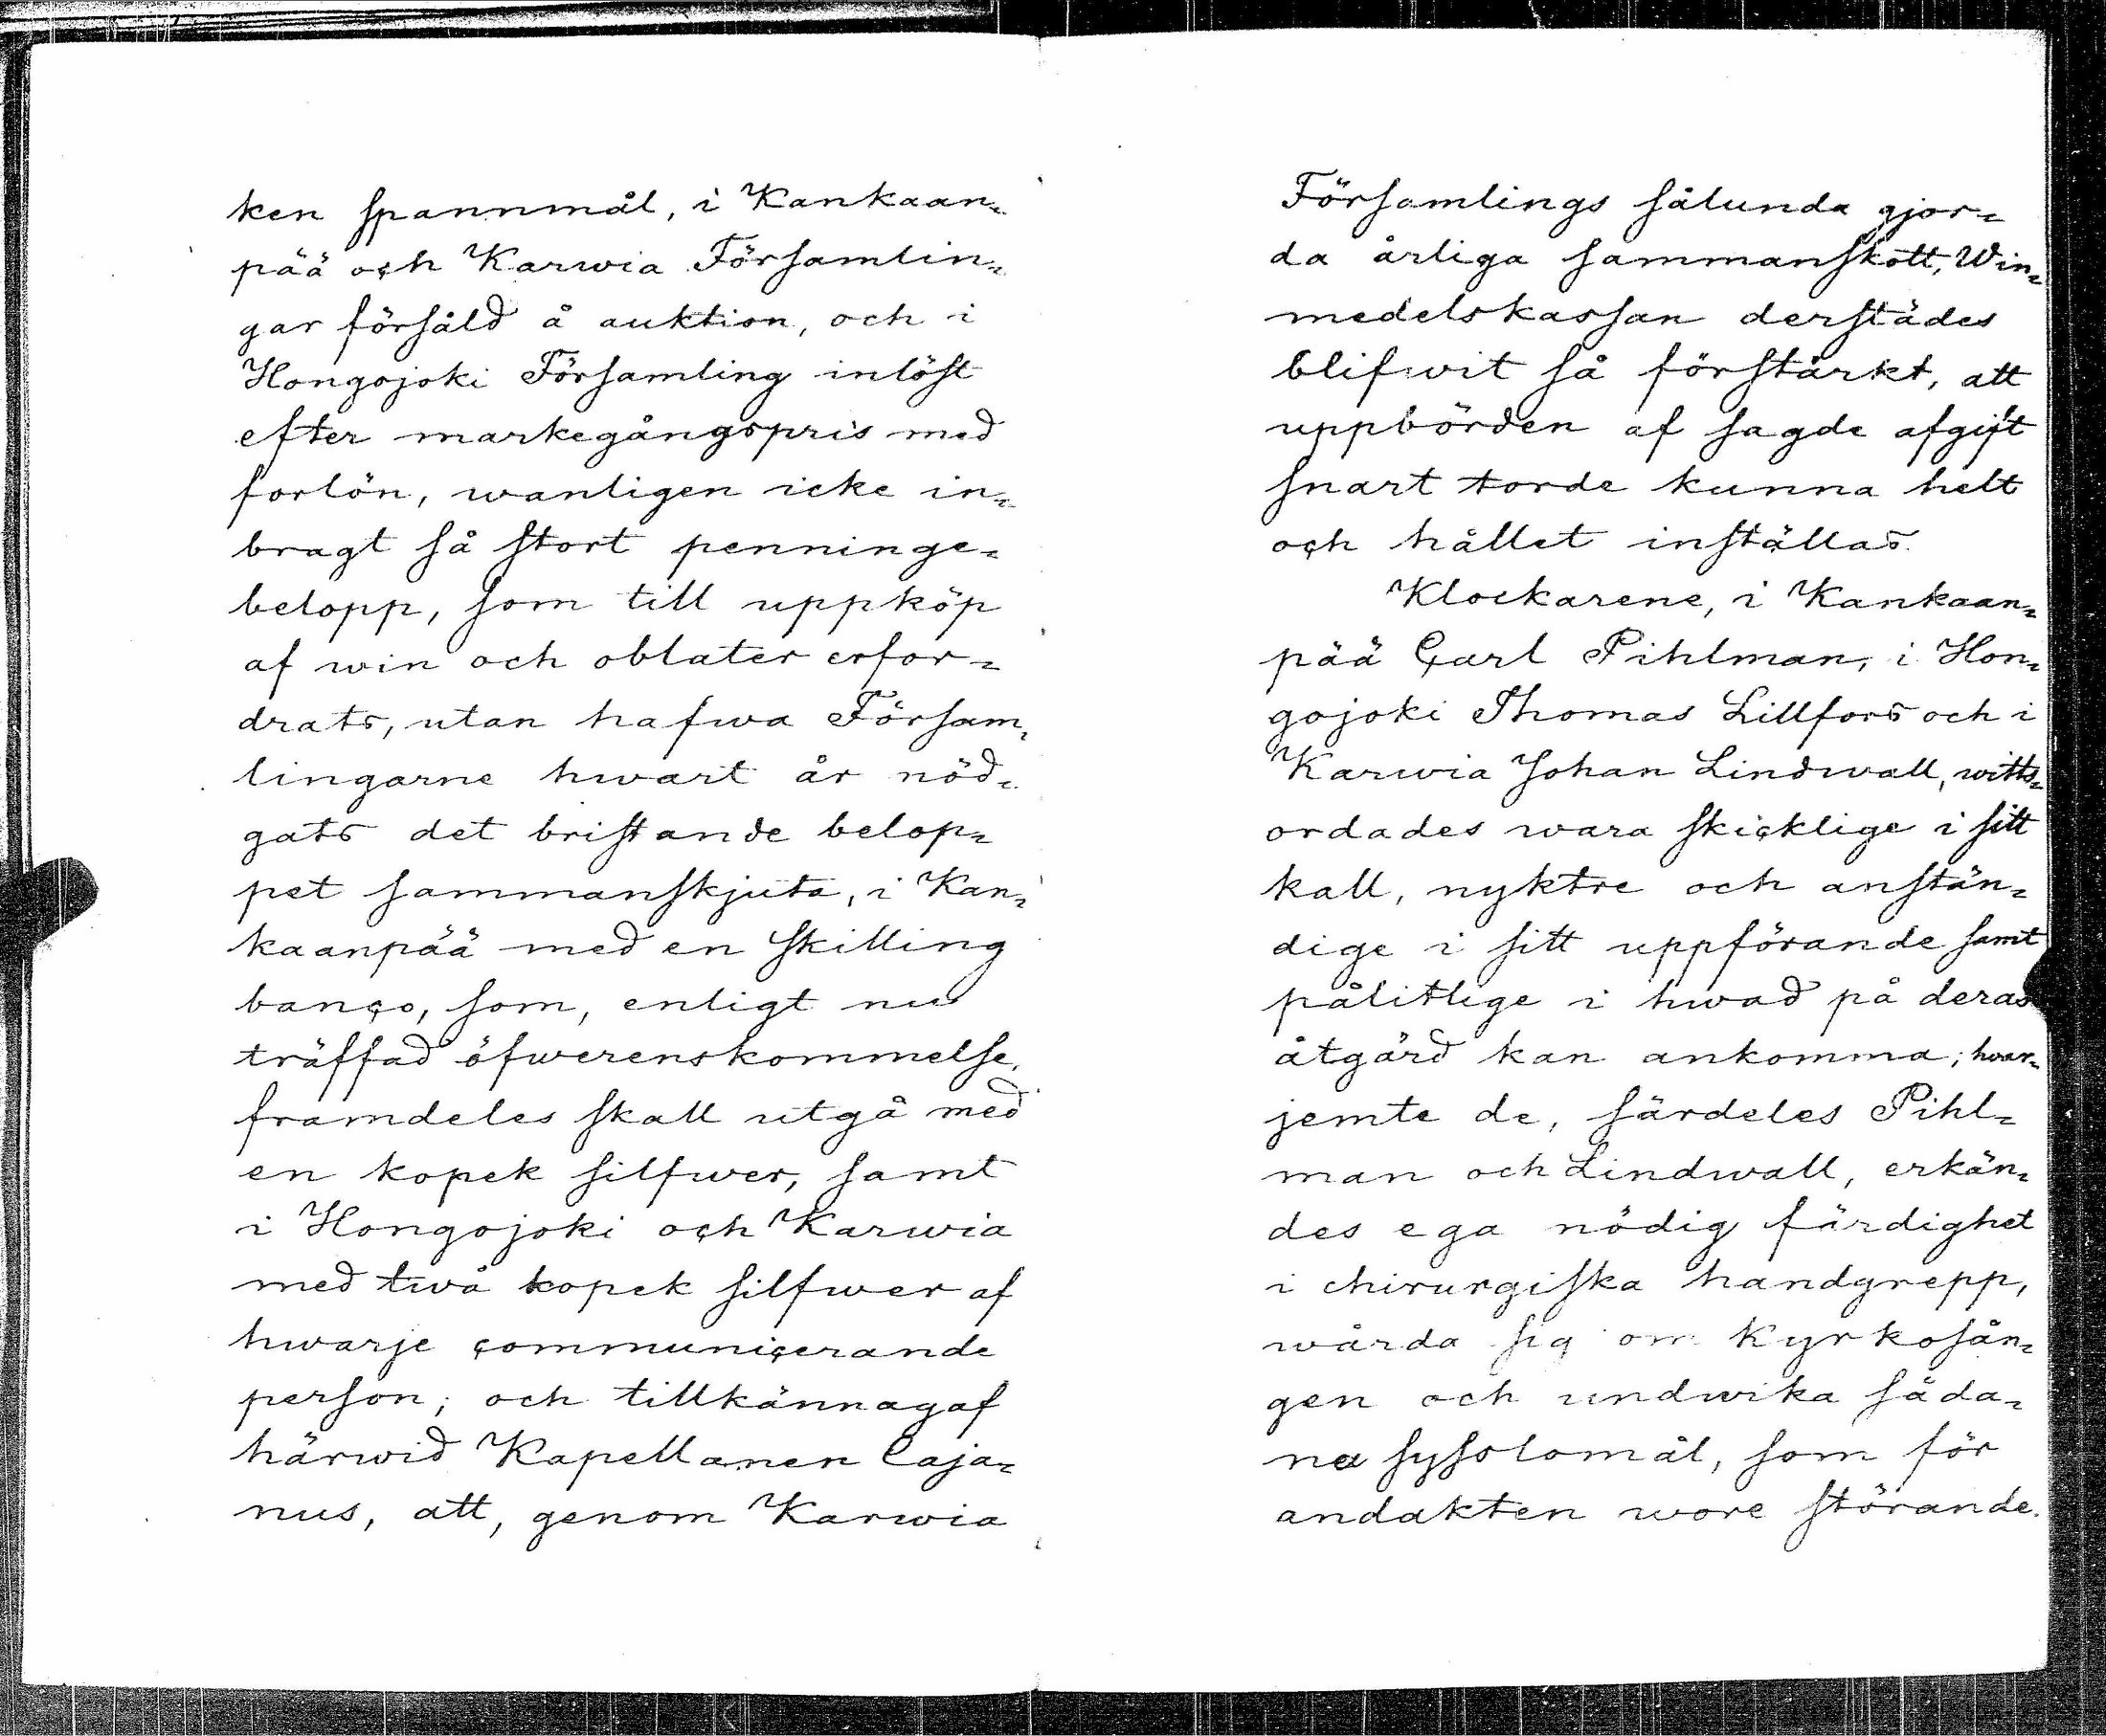 ken spannmål, i Kankaan-
pää och Karwia Församlin-
gar försåld å auktion, och i
Hongojoki Församling inlöst
efter markegångspris med
forlön, wanligen icke in-
bragt så stort penninge-
belopp, som till uppköp
af win och oblater erfor-
drats, utan hafwa Försam-
lingarne hwart år nöd-
gats det bristande belop-
pet sammanskjuta, i Kan-
kaanpää med en skilling
banco, som, enligt nu
träffad öfwerenskommelse,
framdeles skall utgå med
en kopek silfwer, samt
i Hongojoki och Karwia
med twå kopek silfwer af
hwarje communicerande
person; och tillkännagaf
härwid Kapellanen Caja-
nus, att, genom Karwia
Församlings sålunda gjor-
da årliga sammanskott, Win-
medelskassan derstädes
blifwit så förstärkt, att
uppbörden af sagde afgift
snart torde kunna helt
och hållet inställas.
Klockarene, i Kankaan-
pää Carl Pihlman, i Hon-
gojoki Thomas Lillfors och i
Karwia Johan Lindwall, witts-
ordades wara skicklige i sitt
kall, nyktre och anstän-
dige i sitt uppförande samt
pålitlige i hwad på deras
åtgärd kan ankomma; hwar-
jemte de, särdeles Pihl-
man och Lindwall, erkän-
des ega nödig färdighet
i chirurgiska handgrepp,
wårda sig om Kyrkosån-
gen och undwika såda-
na syslomål, som för
andakten wore störande.